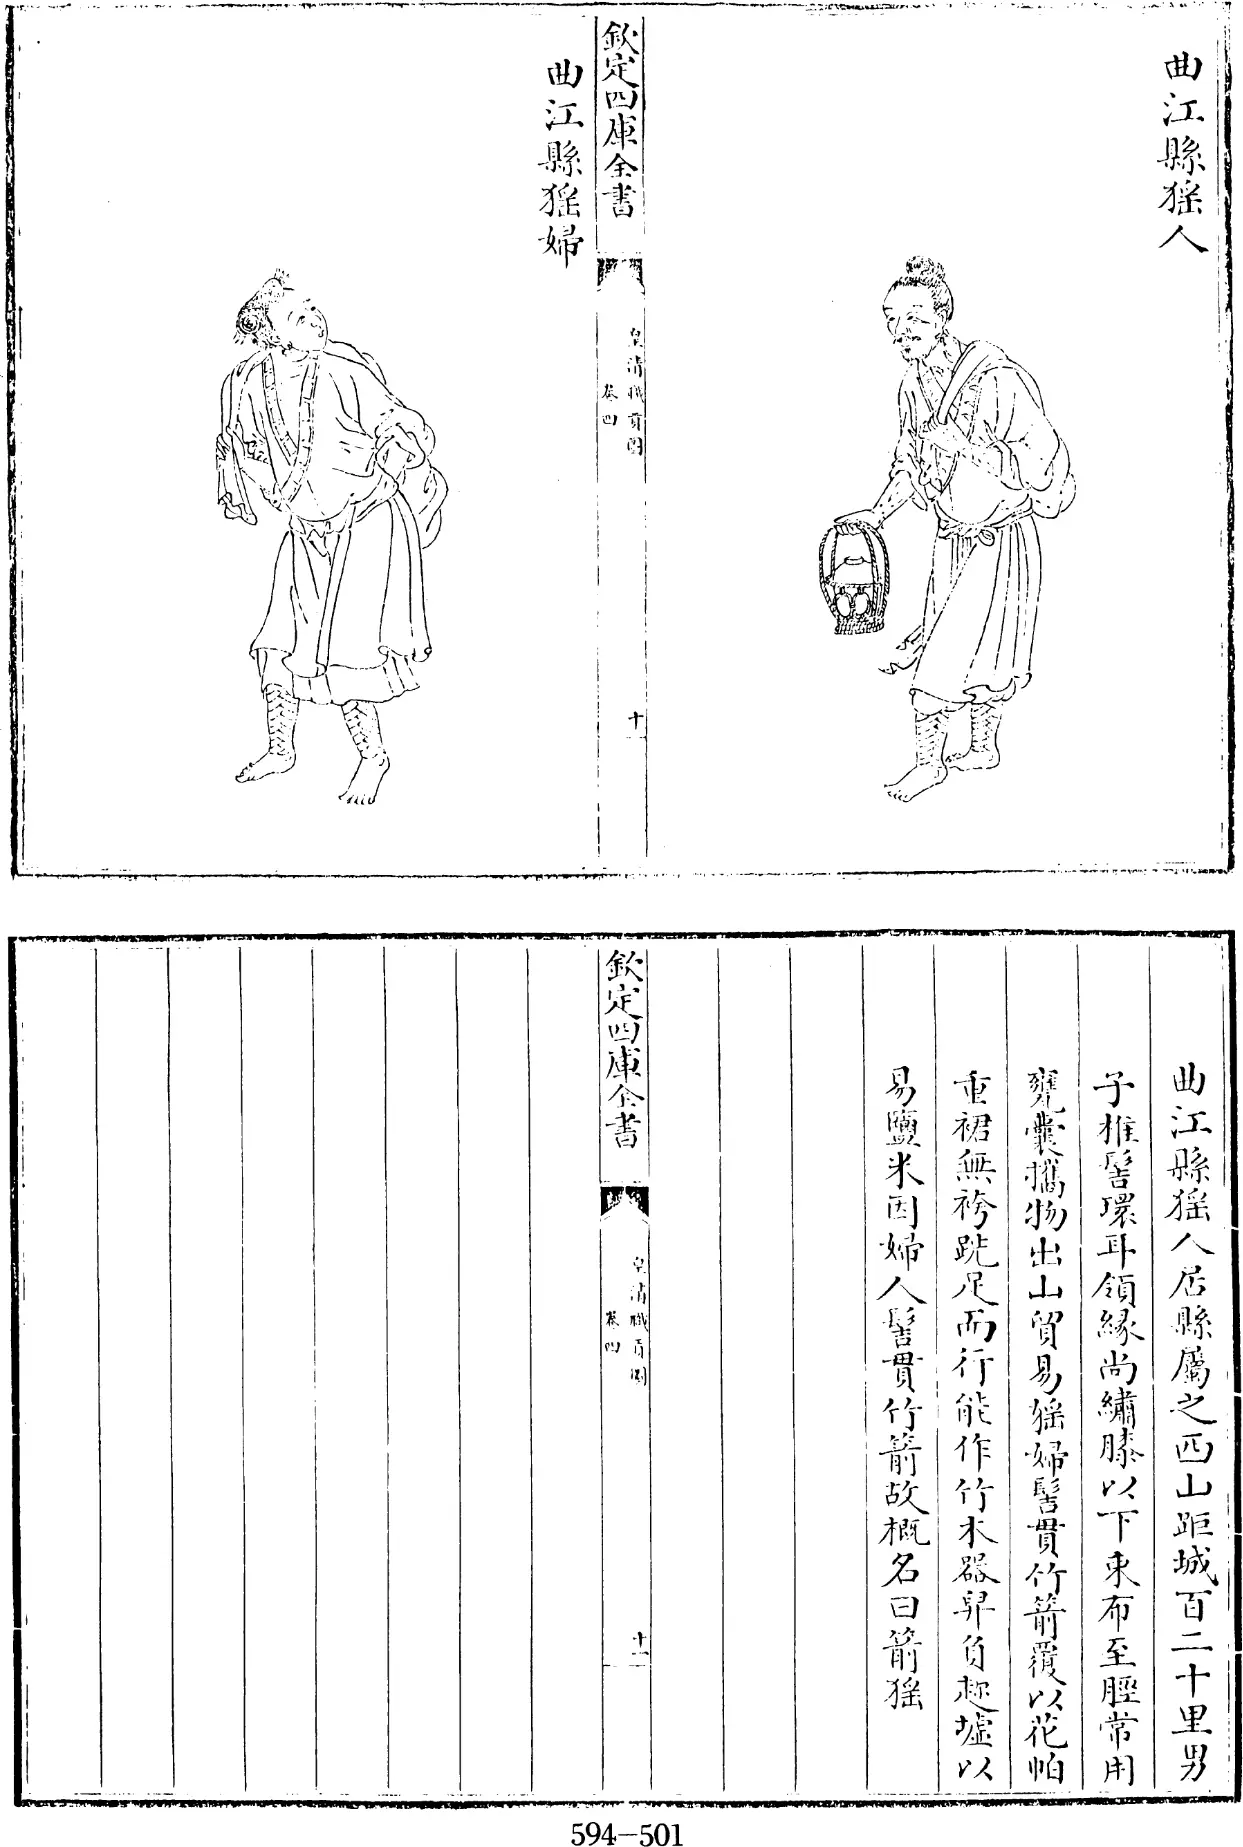 曲江縣猺人
欽定四庫全書
皇清職貢圖
卷四
十
曲江縣猺婦
曲江縣猺人居縣屬之西山距城百二十里男
子椎髻環耳領緣尚繡膝以下束布至脛常用
甕囊攜物出山貿易猺婦髻貫竹箭覆以花帕
重裙無袴跣足而行能作竹木器舁負趂墟以
易鹽米因婦人髻貫竹箭故概名曰箭猺
欽定四庫全書
皇清職貢圖
卷四
十一
594-501